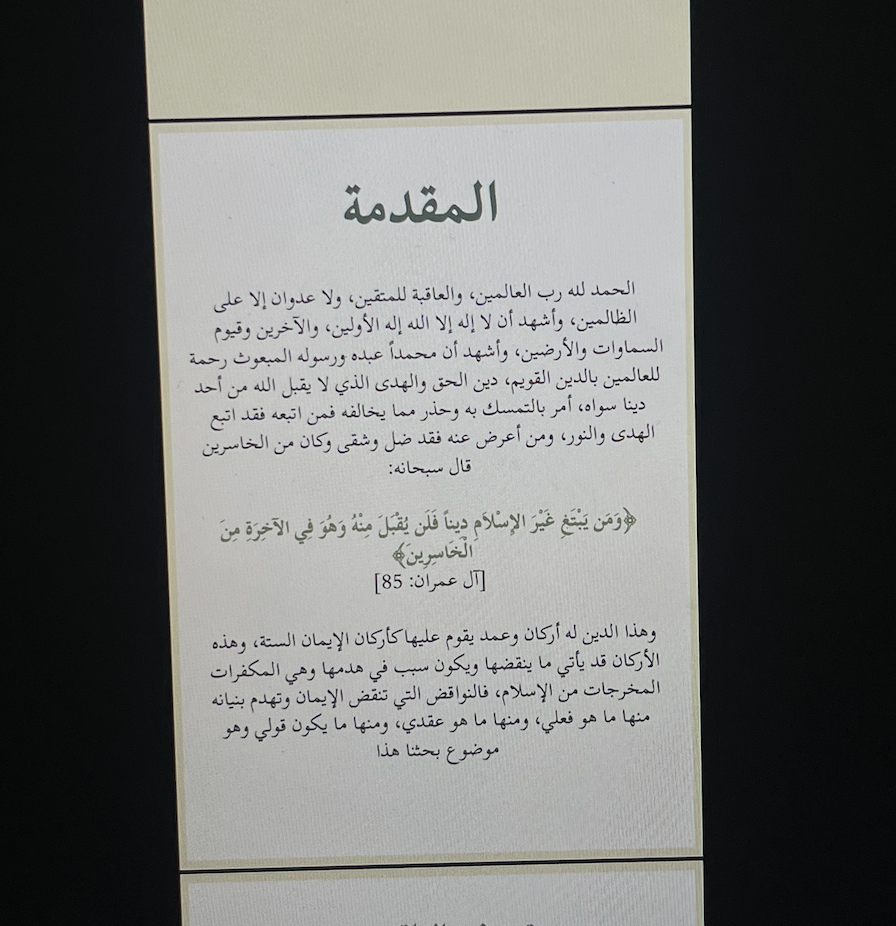 المقدمة
الحمد لله رب العالمين، والعاقبة للمتقين، ولا عدوان إلا على
الظالمين، وأشهد أن لا إله إلا الله إله الأولين، والآخرين وقيوم
السماوات والأرضين، وأشهد أن محمداً عبده ورسوله المبعوث رحمة
للعالمين بالدين القويم، دين الحق والهدى الذي لا يقبل الله من أحد
دينا سواه، أمر بالتمسك به وحذر مما يخالفه فمن اتبعه فقد اتبع
الهدى والنور، ومن أعرض عنه فقد ضل وشقى وكان من الخاسرين
قال سبحانه:
﴿وَمَن يَبْتَغِ غَيْرَ الإِسْلاَمِ دِيناً فَلَن يُقْبَلَ مِنْهُ وَهُوَ فِي الآخِرَةِ مِنَ
الْخَاسِرِينَ﴾
[آل عمران: 85]
وهذا الدين له أركان وعمد يقوم عليها كأركان الإيمان الستة، وهذه
الأركان قد يأتي ما ينقضها ويكون سبب في هدمها وهي المكفرات
المخرجات من الإسلام، فالنواقض التي تنقض الإيمان وتهدم بنيانه
منها ما هو فعلي، ومنها ما هو عقدي، ومنها ما يكون قولي وهو
موضوع بحثنا هذا